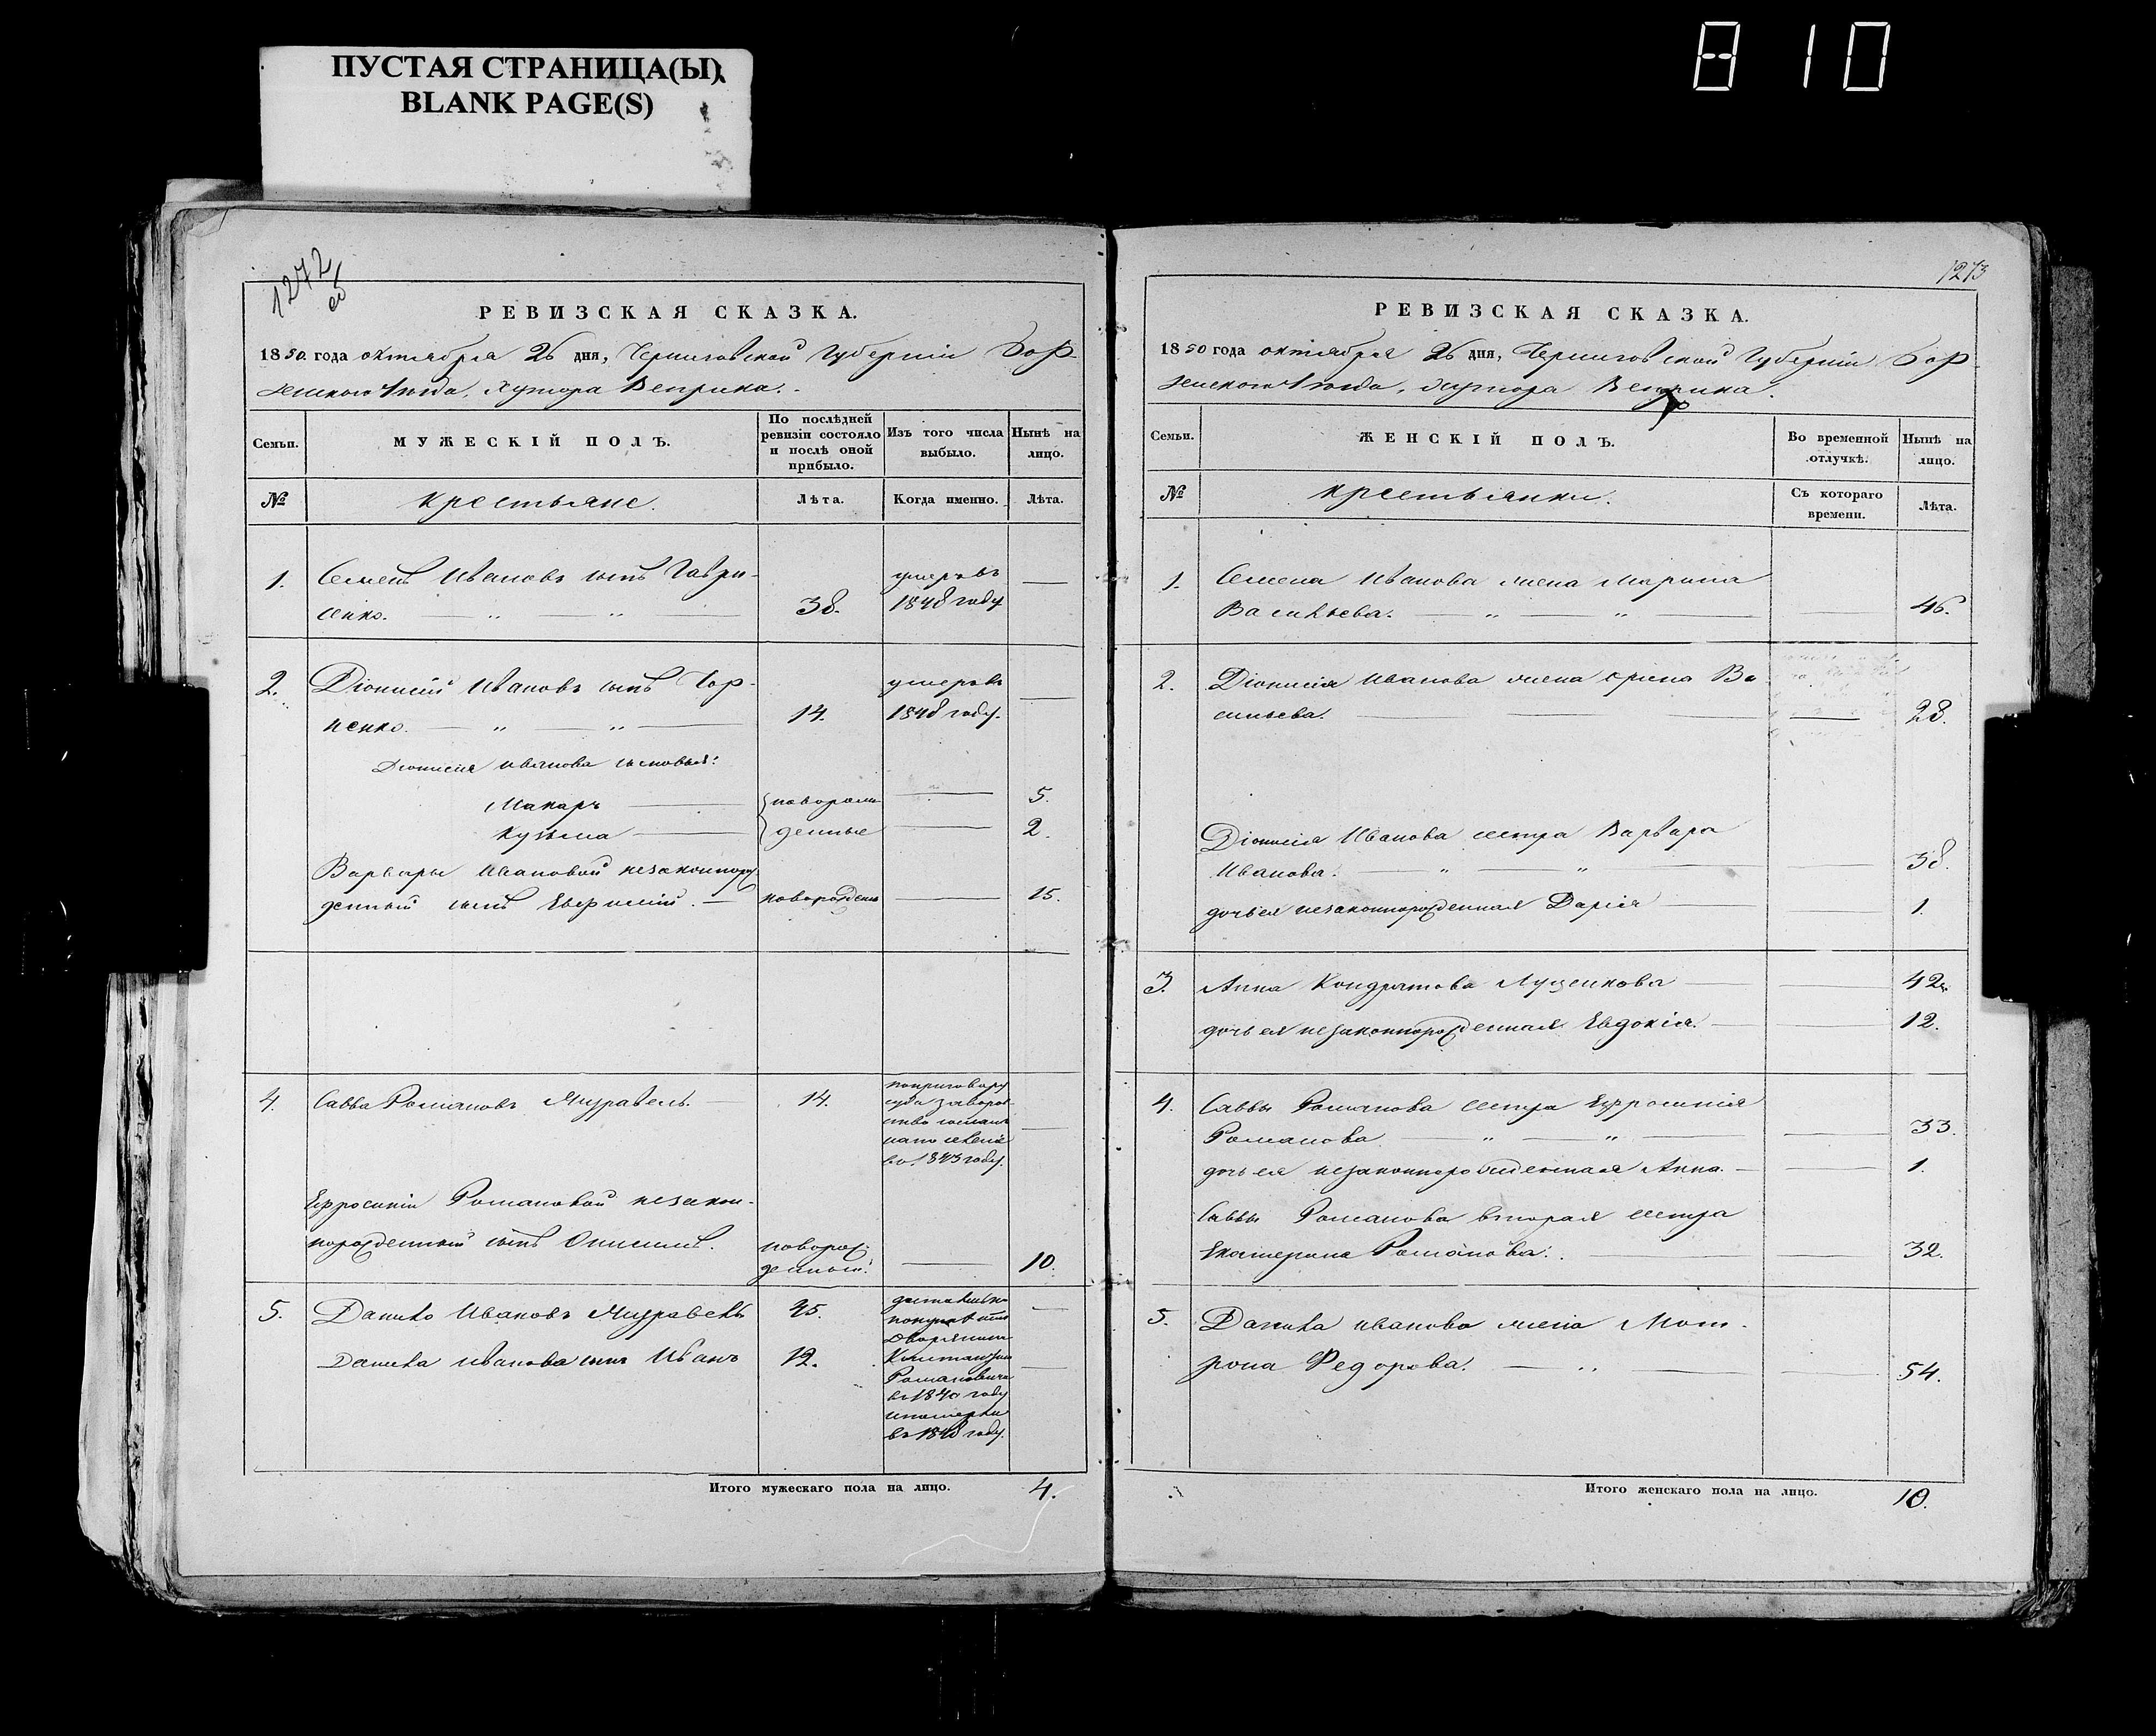 ПУСТАЯ СТРАНИЦА(Ы)
BLANK PAGE(S)
810
1272
об
РЕВИЗСКАЯ СКАЗКА.
1850 года октября 26 дня, Черниговской Губерніи Бор-
зенского уезда, хутора Веприка.
Семьи.
МУЖЕСКІЙ ПОЛЪ.
По послѣдней
ревизіи состояло
и послѣ оной
прибыло.
Изъ того числа
выбыло.
Нынѣ на
лицо.
№
крестьяне.
Лѣта.
Когда именно.
Лѣта.
1.
Семенъ Ивановъ сынъ Гаври-
сенко.
38.
умеръ въ
1848 году
2.
Діонисій Ивановъ сынъ
ненко.
14.
умеръ въ
1848 году.
Діонисія Иванова сыновья:
Макаръ
новорож
5.
Кузьма
денные
2.
Варвары Ивановой незаконнорож
денный сынъ Евфимій.
новорожденъ
15.
4.
Савва Романовъ Журавель.
14.
по приговору
суда за воров
ство сосланъ
на поселеніе
въ 1843 году.
Ефросиніи Романовой незакон-
норожденный сынъ Онисимъ.
новорож
денный.
10.
5.
Данило Ивановъ Журавель
45.
Данила Иванова сынъ Иванъ
12.
Романовича
въ 1840 году
и померли
въ 1848 году.
Итого мужескаго пола на лицо.
4.
1273
РЕВИЗСКАЯ СКАЗКА.
1850 года октября 26 дня, Черниговской Губерніи Бор
зенского уезда, хутора Веприка.
Семьи.
ЖЕНСКІЙ ПОЛЪ.
Во временной
отлучкѣ.
Нынѣ на
лицо.
№
крестьянки.
Съ котораго
времени.
Лѣта.
1.
Семена Иванова жена Марина
Васильева.
46.
2.
Діонисія Иванова жена Ирина Ва
сильева.
28.
Діонисія Иванова сестра Варвара
Иванова.
38.
дочь ея незаконнорожденная Дарія
1.
3.
Анна Кондратова Луценкова
42.
дочь ея незаконнорожденная Евдокія.
12.
4.
Саввы Романова сестра Ефросинія
Романова
33.
дочь ея незаконнорожденная Анна.
1.
Саввы Романова вторая сестра
Екатерина Романова.
32.
5.
Данила Иванова жена Мот-
рона Федорова.
54.
Итого женскаго пола на лицо.
10.